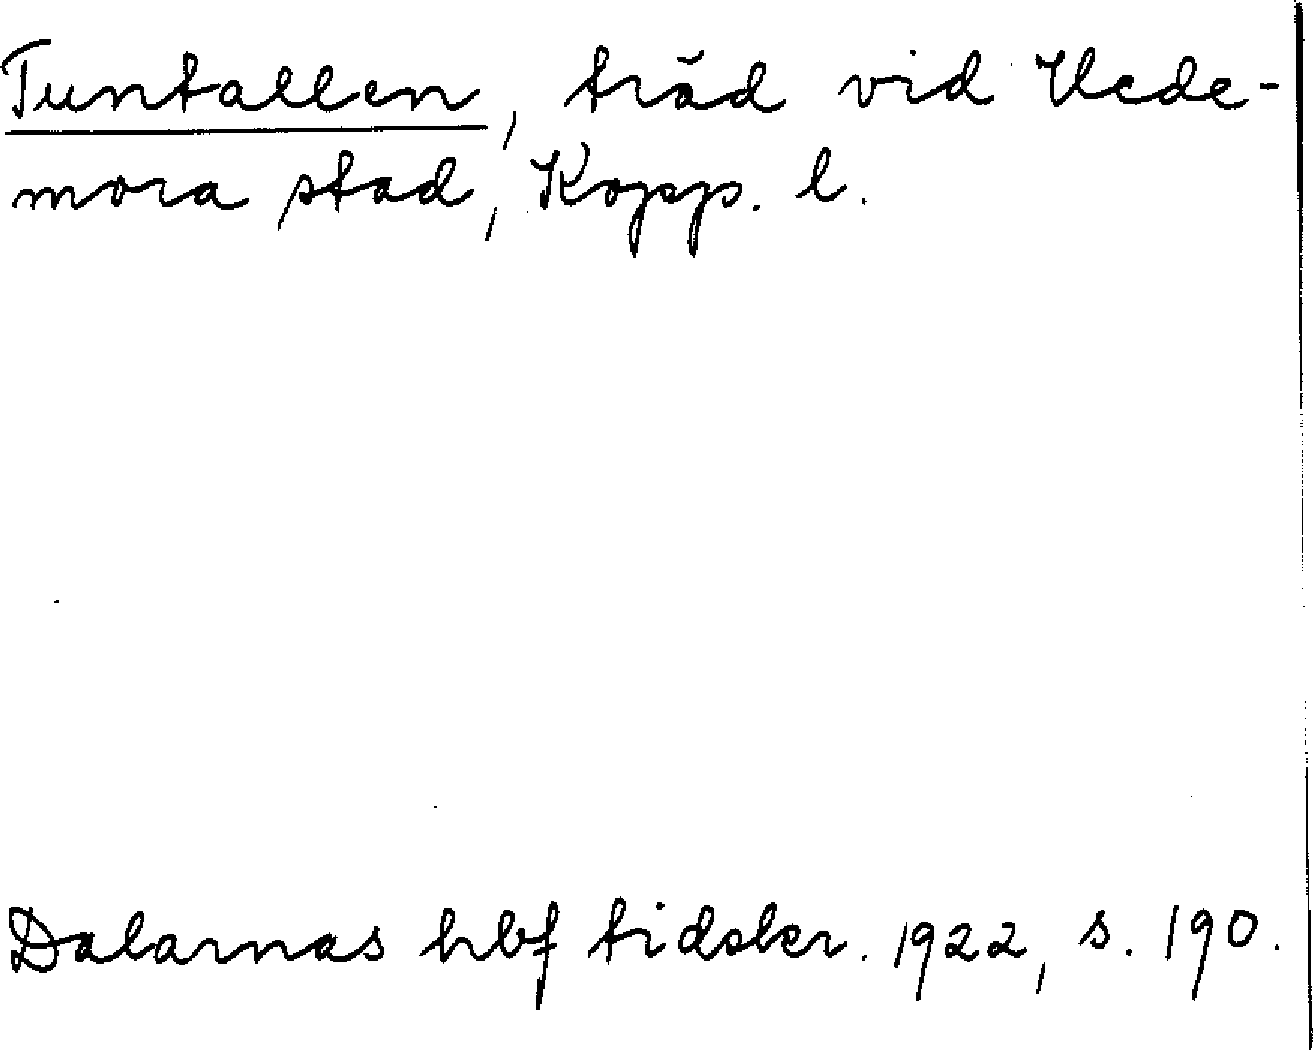 Tuntallen, träd vid Hede-
mora stad, Kopp. l.
Dalarnas hbf tidskr. 1922, s. 190.